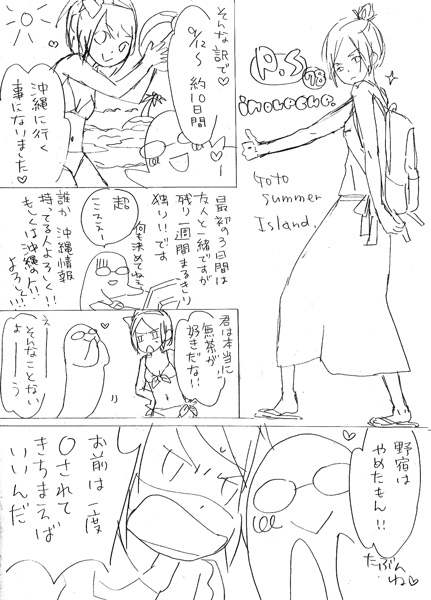 P.S
78
inoueppe.
Go to
summer
Island.
そんな訳で♡
9/12〜 約10日間
沖縄に行く
事になりました♡
最初の3日間は
友人と一緒ですが
残り一週間まるきり
独り!!です
何も決めてねぇ
超
ミステー
誰か 沖縄情報
持ってる人よろしく!!
もしくは沖縄の人!!
よろしく!!
君は本当に
無茶が
好きだな!!
えー
そんなことない
よーう
野宿は
やめたもん!!
たぶん
ね♡
お前は一度
〇されて
きちまえば
いいんだ